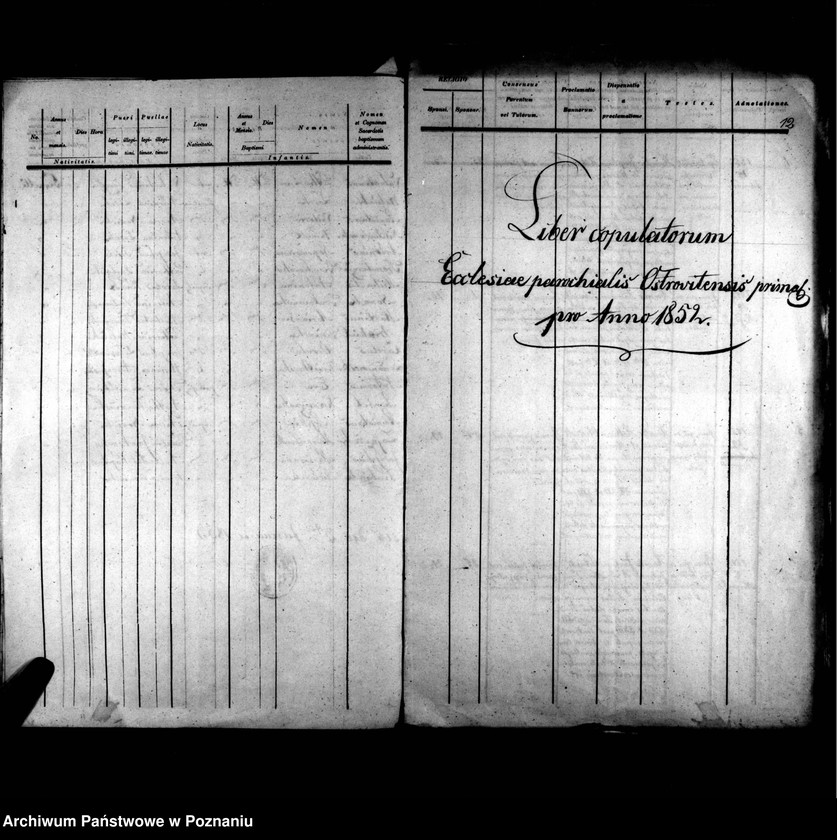 No. Annus et mensis. Dies Hora Pueri legitimi illegitimi Puellae legitimae. illegitimae. Locus Nativitatis. Annus et Mensis. Dies Baptismi Nomen Nomen et Cognomen Sacerdotis baptismum administrantis
Nativitatis. Infantis.
RELIGIO Sponsi. Sponsae. Consensus Parentum vel Tutorum. Proclamatio Bannorum. Dispensatio a proclamatione Testes. Adnotationes.
12
Liber copulatorum
Ecclesiae parochialis Ostrovitensis primat.
pro Anno 1852.
Archiwum Państwowe w Poznaniu